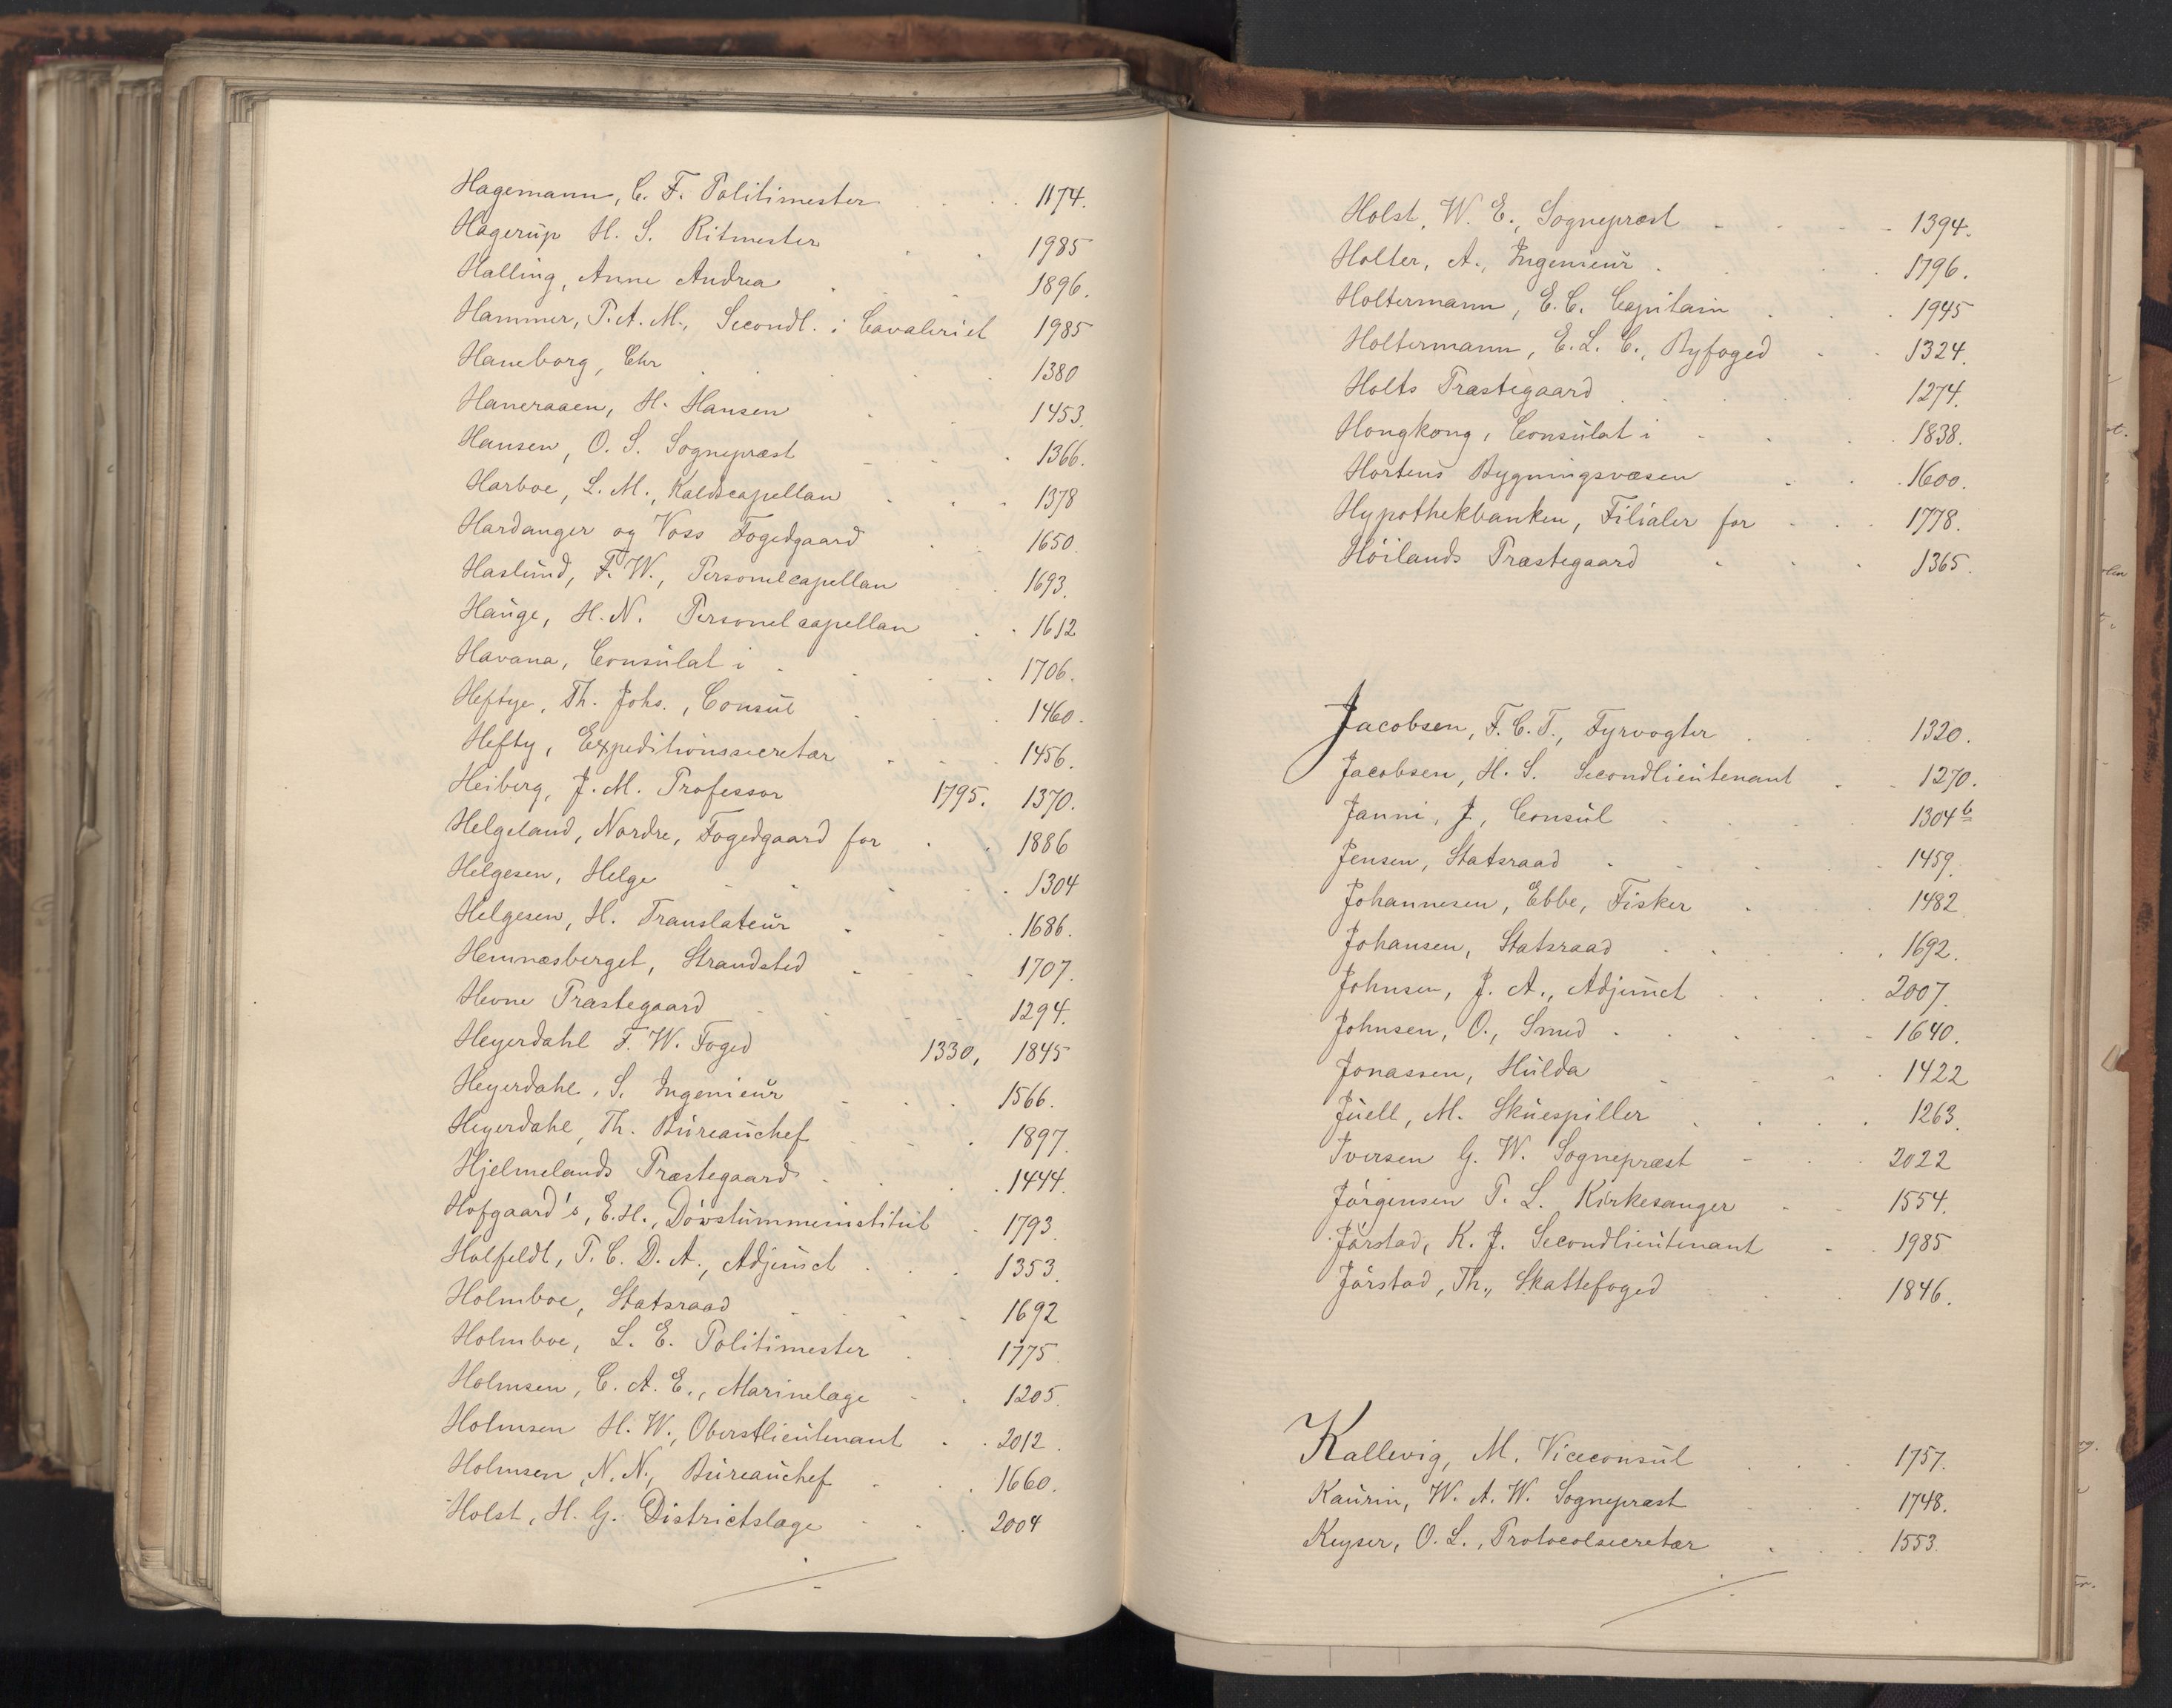 Hagemann, C. F. Politimester . . . 1174.
Hagerup H. S. Ritmester . . 1985
Halling, Anne Andrea . . . 1896.
Hammer, P. A. M., Secondl. i Cavaleriet 1985
Haneborg, Chr . . . . . 1380
Haneraaen, H. Hansen . . 1453.
Hansen, O. S. Sognepræst . . . 1366.
Harboe, L. M., Kaldscapellan . . . 1378
Hardanger og Voss Fogedgaard . . 1650.
Haslund, F. W., Personelcapellan . . 1693.
Hauge, H. N. Personelcapellan . . 1612
Havana, Consulat i . . . . 1706.
Heftye, Th. Johs., Consul . . . 1460.
Hefty, Expeditionssecretær . . . 1456.
Heiberg, J. M. Professor 1795. 1370.
Helgeland, Nordre, Fogedgaard for . . 1886
Helgesen, Helge . . . . 1304
Helgesen, H. Translateur . . . 1686.
Hemnæsberget, Strandsted . . . 1707.
Hevne Præstegaard . . . . 1294.
Heyerdahl F. W. Foged 1330, 1845
Heyerdahl, S. Ingenieur . . . 1566.
Heyerdahl, Th. Bureauchef . . . 1897.
Hjelmelands Præstegaard . . . 1444.
Hofgaard's, E. H., Døvstummeinstitut . 1793.
Holfeldt, P. C. D. A., Adjunct . . . 1353.
Holmboe, Statsraad . . . 1692
Holmboe, L. E. Politimester . . 1775.
Holmsen, C. A. E., Marinelæge . . 1205.
Holmsen H. W., Oberstlieutenant . . 2012.
Holmsen, N. N., Bureauchef . . . 1660.
Holst, H. G. Districtslæge . . . 2004
Holst, W. E., Sognepræst . . . . 1394.
Holter, A., Ingenieur . . . . 1796.
Holtermann, E. C. Capitain . . . 1945
Holtermann, E. L. C., Byfoged . . 1324.
Holts Præstegaard . . . . 1274.
Hongkong, Consulat i . . . 1838.
Hortens Bygningsvæsen . . . 1600.
Hypothekbanken, Filialer for . . . 1778.
Høilands Præstegaard . . . 1365.
Jacobsen, F. C. T., Fyrvogter . . . 1320.
Jacobsen, H. S. Secondlieutenant . . 1270.
Janni, J, Consul . . . . 1304 b
Jensen, Statsraad . . . . 1459.
Johannesen, Ebbe, Fisker . . . 1482
Johansen, Statsraad . . . . 1692.
Johnsen, J. A., Adjunct . . . . 2007.
Johnsen, O., Smed . . . . 1640.
Jonassen, Hulda . . . . 1422
Juell, M. Skuespiller . . . . 1263.
Iversen G. W. Sognepræst . . . 2022
Jørgensen P. L. Kirkesanger . . 1554.
Jørstad, K. J. Secondlieutenant . . 1985
Jørstad, Th., Skattefoged . . 1846.
Kallevig, M. Viceconsul . . . 1757.
Kaurin, W. A. W. Sognepræst . . . 1748.
Keyser, O. L., Protocolsecretær . . . 1553.